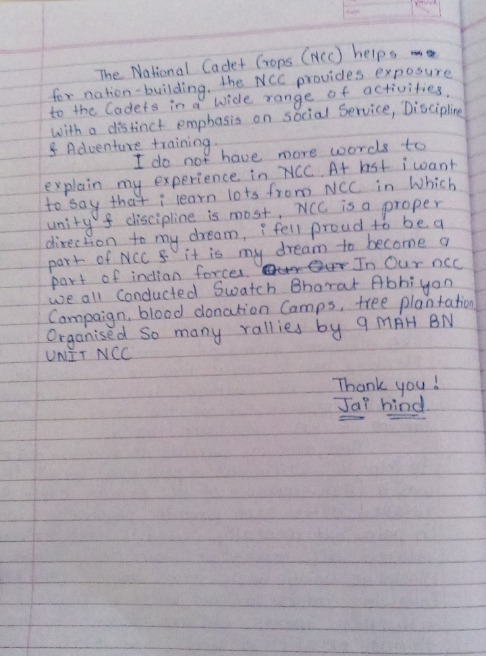 The National Cadet Crops (NCC) helps
for nation-building. the NCC provides exposure
to the Cadets in a wide range of activities,
with a distinct emphasis on social Service, Discipline
& Adventure training.
I do not have more words to
explain my experience in NCC. At last i want
to say that i learn lots from NCC in Which
unity & discipline is most. NCC is a proper
direction to my dream, i fell proud to be a
part of NCC & it is my dream to become a
part of indian forces. In Our ncc
we all Conducted Swatch Bharat Abhiyan
Campaign, blood donation Camps, tree plantation
Organised So many rallies by 9 MAH BN
UNIT NCC
Thank you!
Jai hind